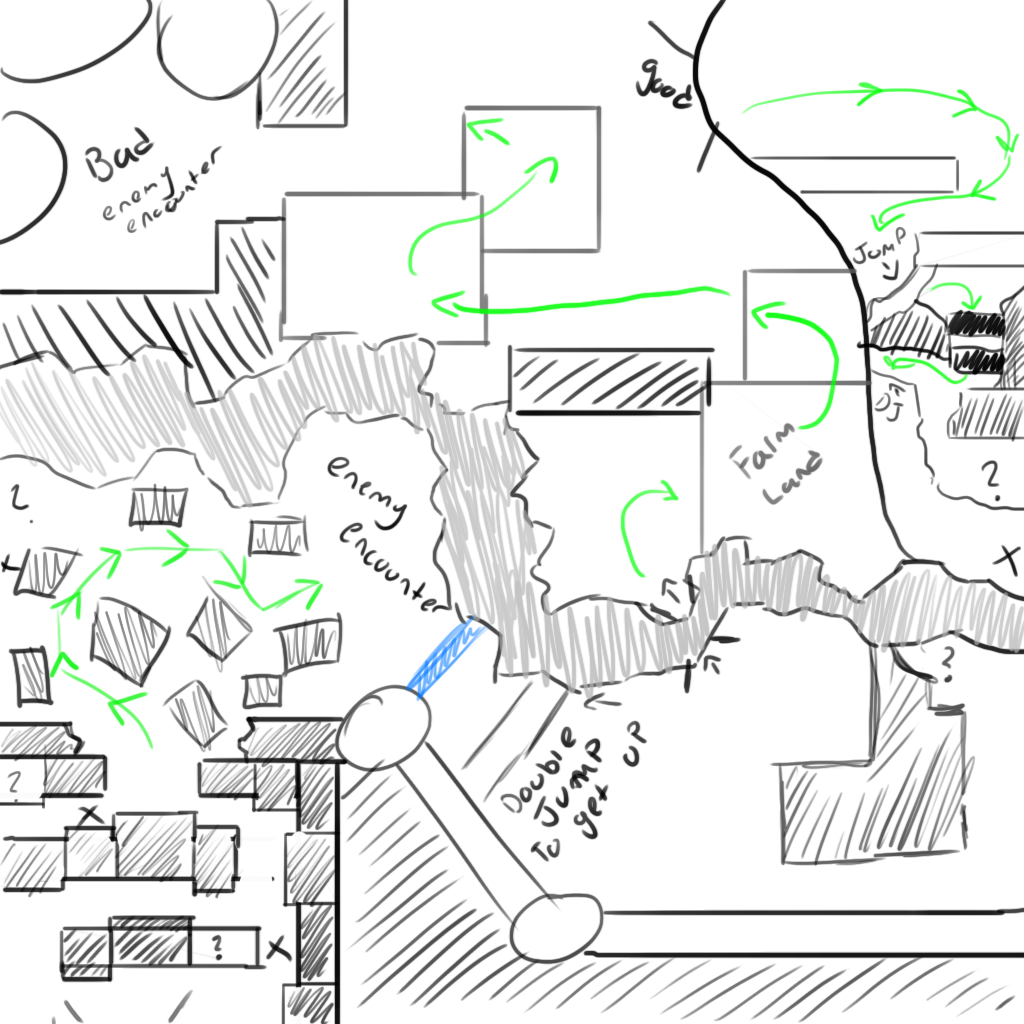 good
Bad
enemy
encounter
JUMP
DJ
Falm
Land
?
enemy
encounter
?
X
?
Double
Jump
To get UP
?
X
?
X